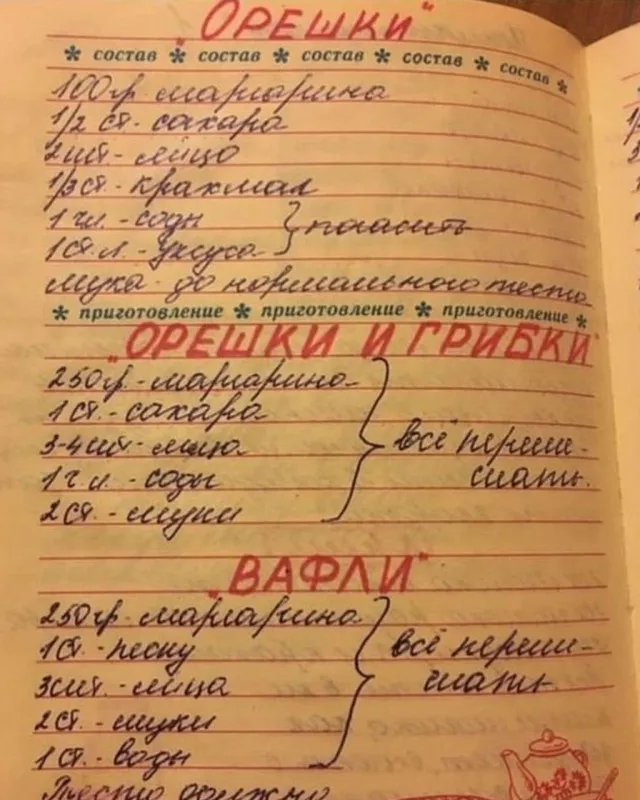 "ОРЕШКИ"
* состав * состав * состав * состав * состав *
100гр. маргарина
1/2 ст. сахара
2 шт. - яйцо
1/3 ст. - крахмал
1 ч.л. - соды } погасить
1 ст. л. - уксуса
мука - до нормального теста
* приготовление * приготовление * приготовление *
"ОРЕШКИ И ГРИБКИ"
250гр. - маргарина
1 ст. - сахара
3-4 шт. - яйца } всё переме-
1 ч л. - соды шать.
2 ст. - муки
"ВАФЛИ"
250гр. маргарина
1 ст. - песку } всё переме-
3 шт. - яйца шать
2 ст. - муки
1 ст. - воды
Тесто должно